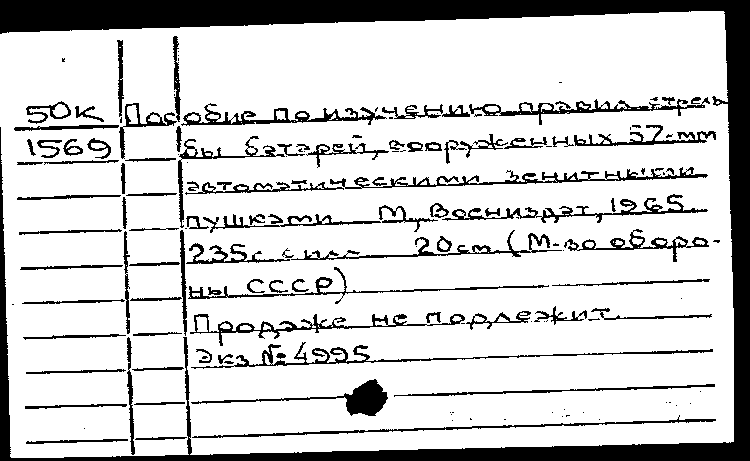 50К Пособие по изучению правил стрель
1569 бы батарей, вооруженных 57-мм
автоматическими зенитными
пушками. М., Воениздат, 1965.
235с с илл 20см (М-во оборо-
ны СССР)
Продаже не подлежит.
Экз № 4995